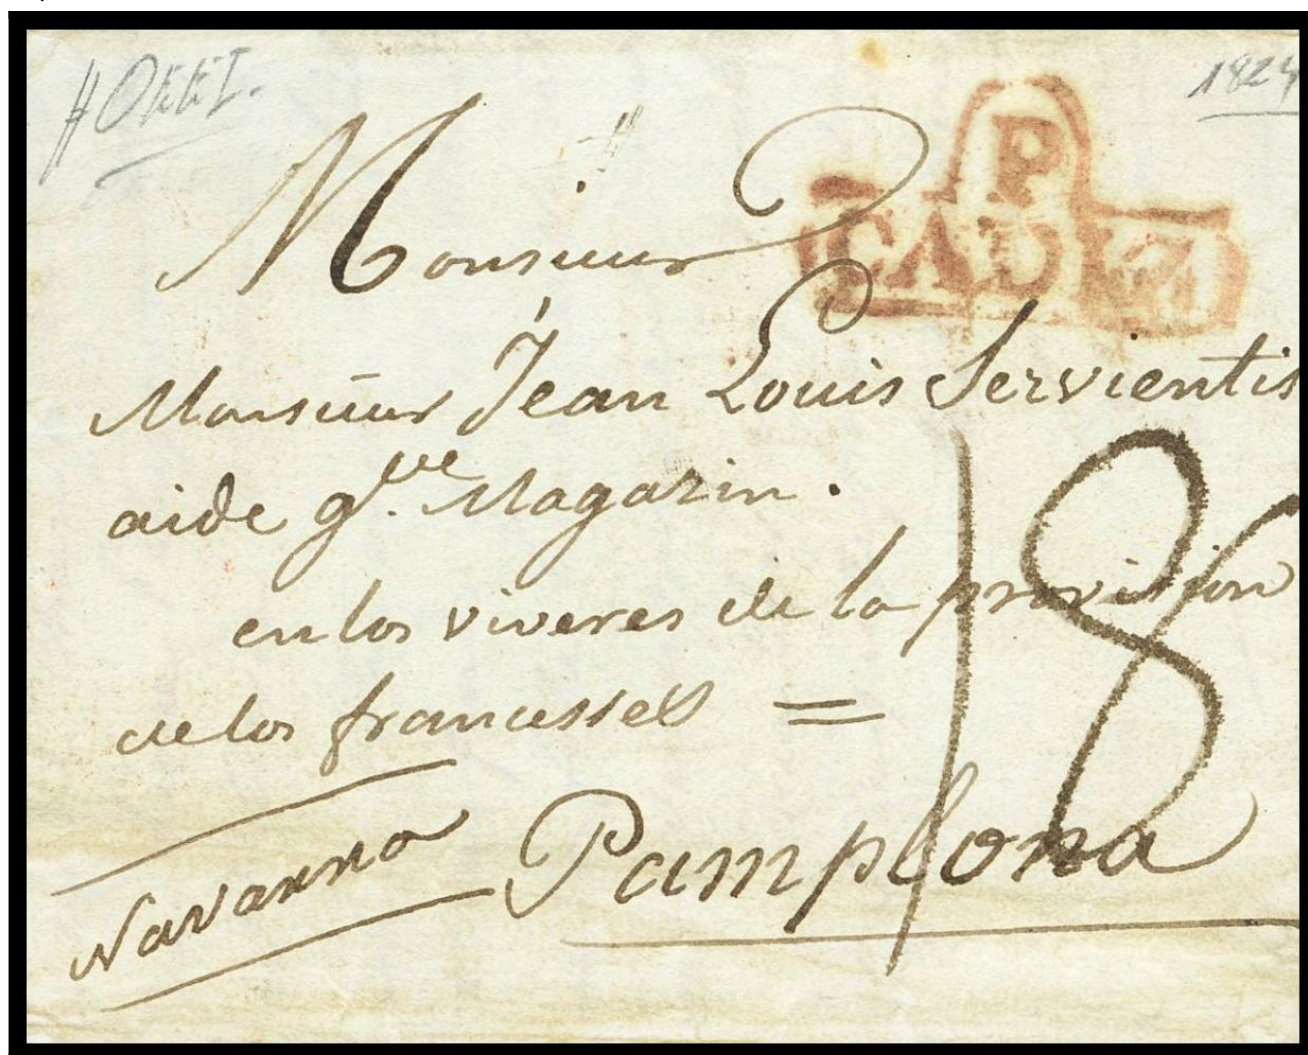 1824
P
CADIZ
Monsieur
Monsieur Jean Louis Servientis
aide g.ve Magazin.
en los viveres de la provision
de los francesses =
18
Navarra
Pamplona